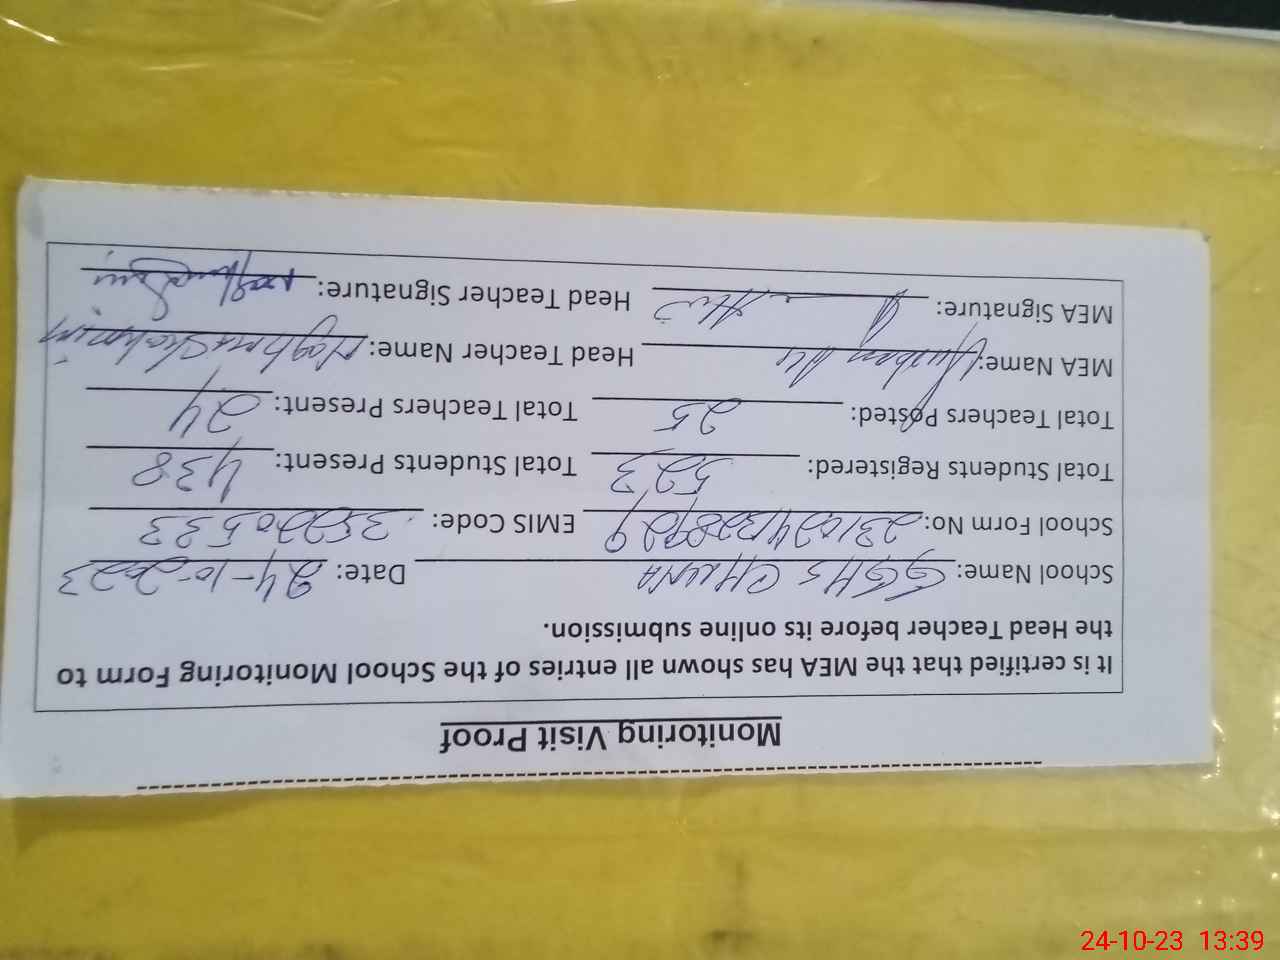 Monitoring Visit Proof
It is certified that the MEA has shown all entries of the School Monitoring Form to
the Head Teacher before its online submission.
School Name: GGHS CHUNA Date: 24-10-2023
School Form No: EMIS Code: 35220533
Total Students Registered: 523 Total Students Present: 438
Total Teachers Posted: 25 Total Teachers Present: 24
MEA Name: Head Teacher Name: Naghma Shaheen
MEA Signature: Head Teacher Signature:
24-10-23 13:39